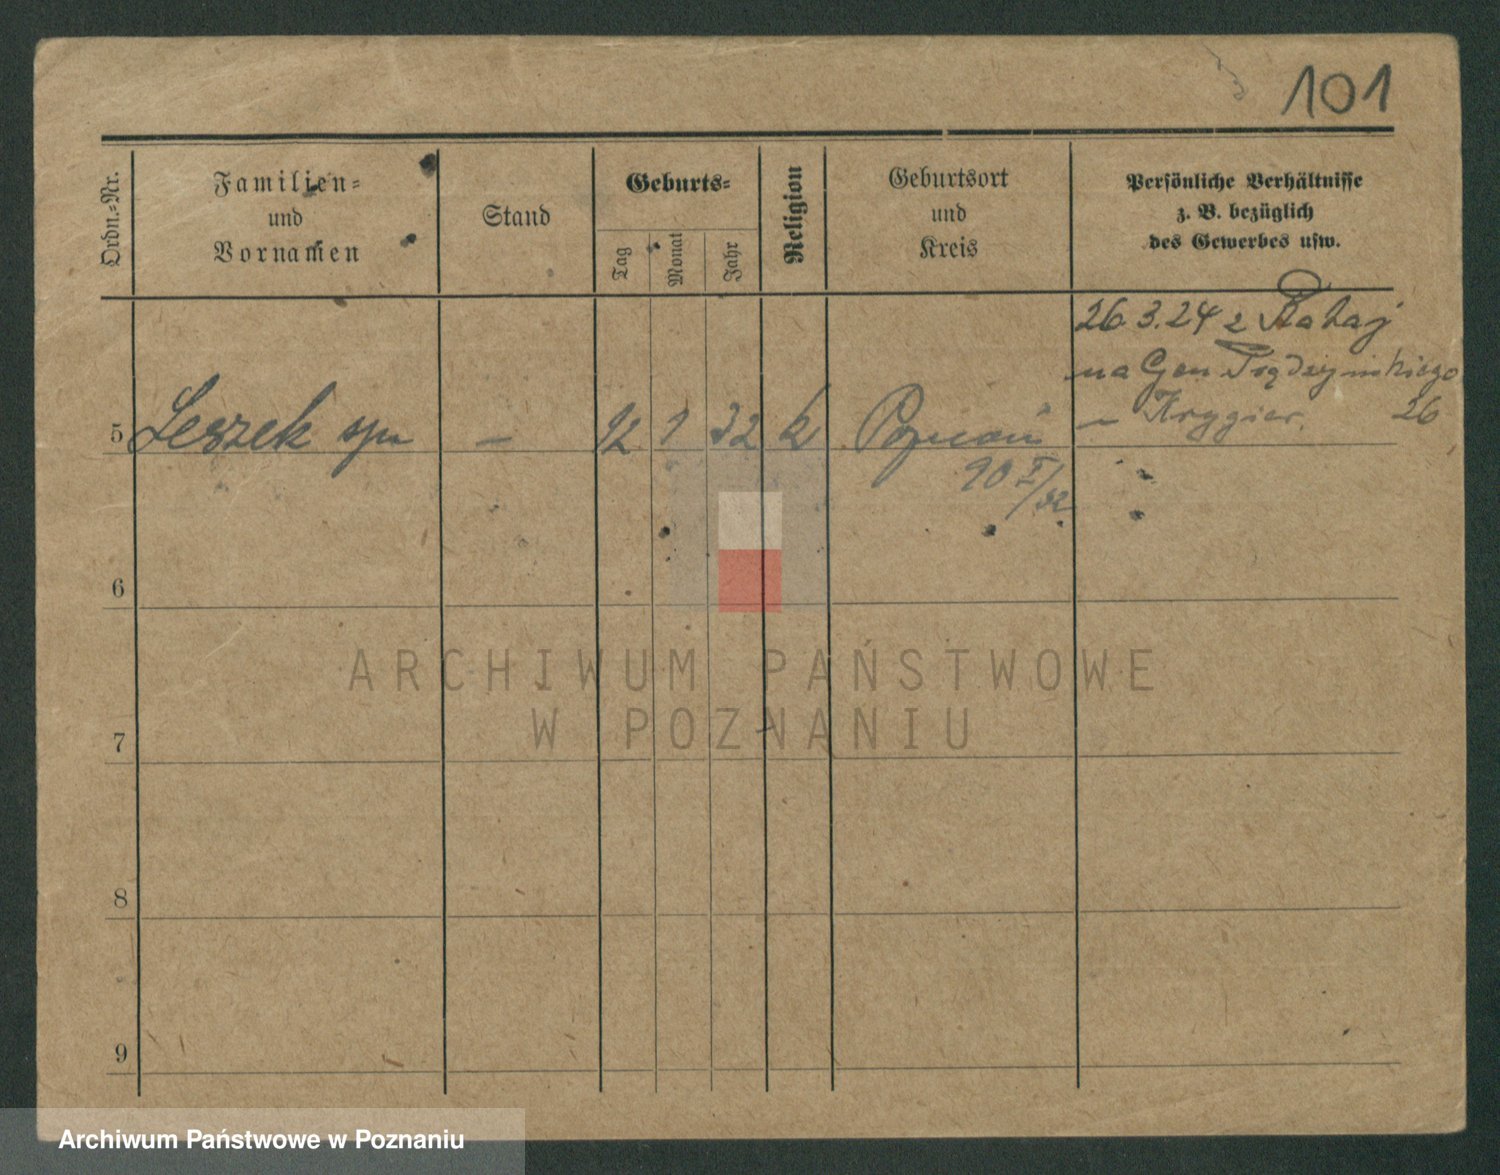 101
Ordn.-Nr.
Familien-
und
Vornamen
Stand
Geburts-
Tag
Monat
Jahr
Religion
Geburtsort
und
Kreis
Persönliche Verhältnisse
z. B. bezüglich
des Gewerbes usw.
26.3.24 z Rataj
na Gen Prądzyńskiego
26
– Krygier.
5 Leszek syn – 12 1 32 k Poznań
I/32
6
7
8
9
ARCHIWUM PAŃSTWOWE
W POZNANIU
Archiwum Państwowe w Poznaniu